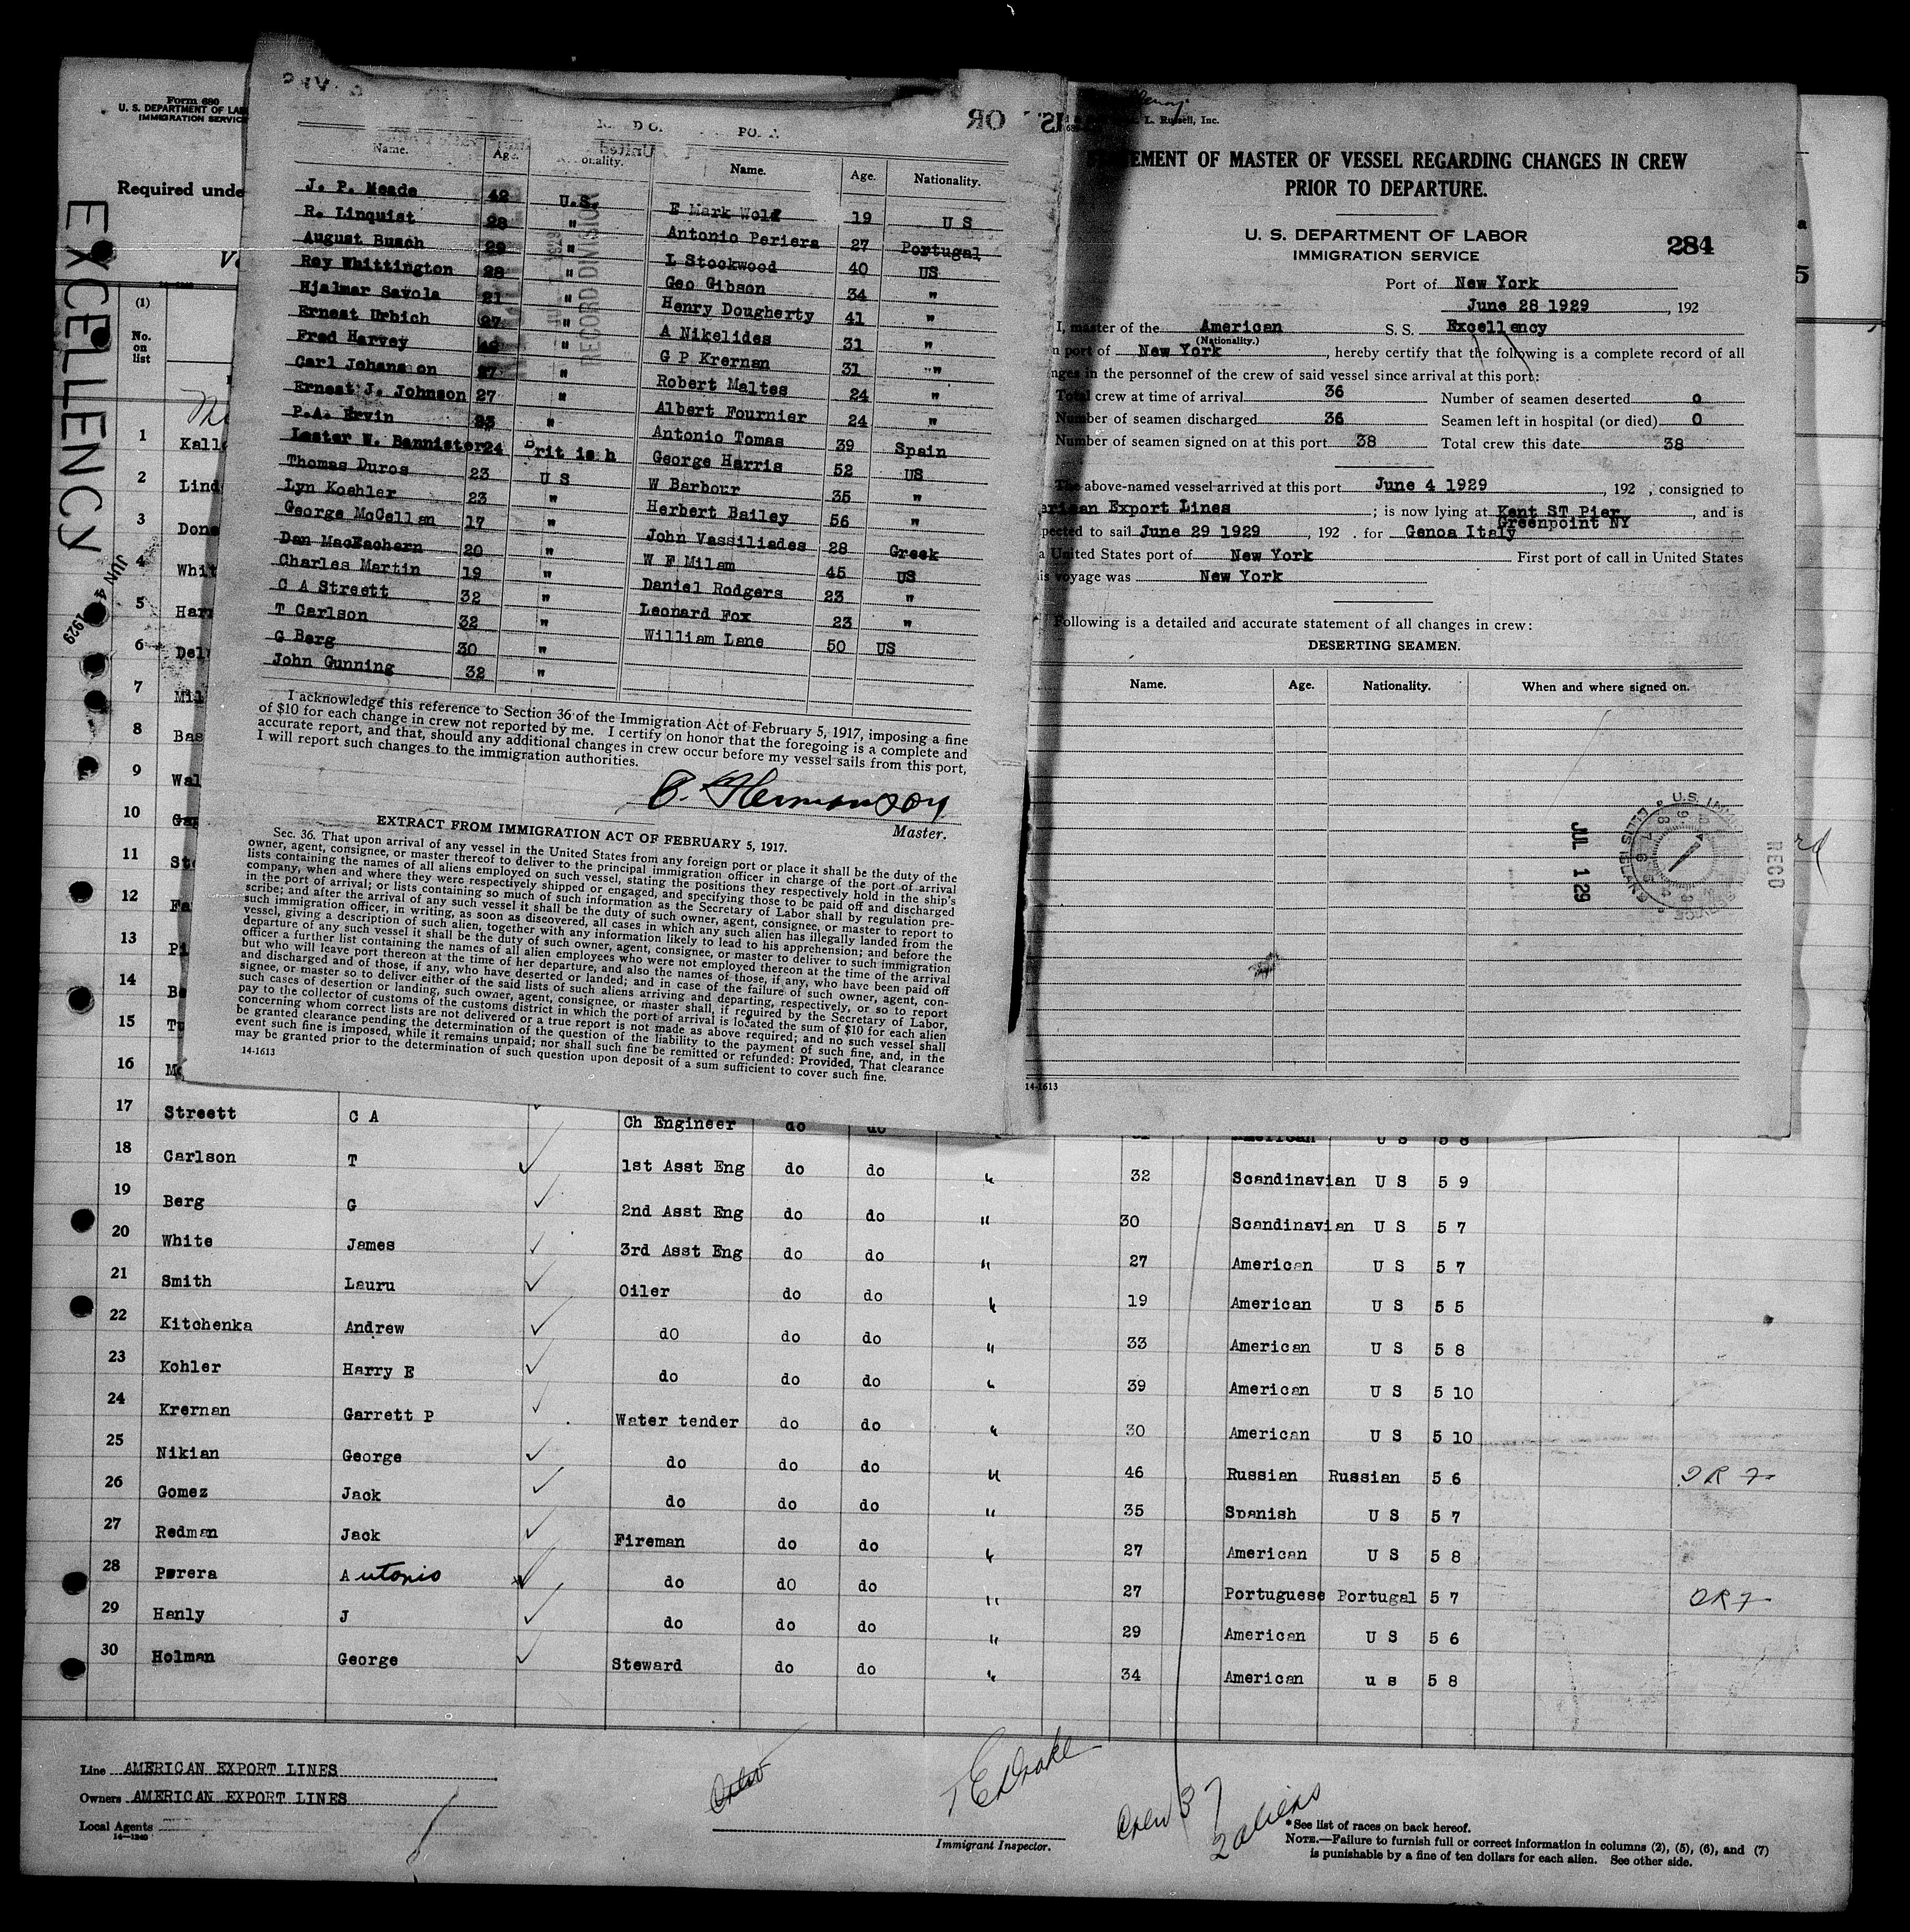 Form 680
U. S. DEPARTMENT OF LAB
IMMIGRATION SERVICE
Required unde
EXCELLENCY
JUN 4 1929
(1)
No. on list
1 Kall
2 Lind
3 Done
4 Whit
5 Harr
6 Del
7 Mil
8 Bas
9 Wal
10 Ga
11 St
12 Fa
13 Pi
14 Be
15 Tu
16 Mc
Name. Age. Nationality. Name. Age. Nationality.
J. P. Meade 42 U.S. E Mark Wold 19 U S
R. Linquist 28 " Antonio Periera 27 Portugal
August Busch 29 " L Stockwood 40 US
Roy Whittington 28 " Geo Gibson 34 "
Hjalmar Savola 21 " Henry Dougherty 41 "
Ernest Urbich 27 " A Nikelides 31 "
Fred Harvey 42 " G P Krernan 31 "
Carl Johanson 27 " Robert Maltes 24 "
Ernest J. Johnson 27 " Albert Fournier 24 "
P.A. Ervin 23 " Antonio Tomas 39 Spain
Lester W. Bannister 24 Brit is h George Harris 52 US
Thomas Duros 23 U S W Barbour 35 "
Lyn Koehler 23 " Herbert Bailey 56 "
George McCellan 17 " John Vassiliades 28 Greek
Dan MacEachern 20 " W F Milam 45 US
Charles Martin 19 " Daniel Rodgers 23 "
C A Streett 32 " Leonard Fox 23 "
T Carlson 32 " William Lane 50 US
G Berg 30 "
John Gunning 32 "
RECORD DIVISION
I acknowledge this reference to Section 36 of the Immigration Act of February 5, 1917, imposing a fine
of $10 for each change in crew not reported by me. I certify on honor that the foregoing is a complete and
accurate report, and that, should any additional changes in crew occur before my vessel sails from this port,
I will report such changes to the immigration authorities.
Master.
EXTRACT FROM IMMIGRATION ACT OF FEBRUARY 5, 1917.
Sec. 36. That upon arrival of any vessel in the United States from any foreign port or place it shall be the duty of the
owner, agent, consignee, or master thereof to deliver to the principal immigration officer in charge of the port of arrival
lists containing the names of all aliens employed on such vessel, stating the positions they respectively hold in the ship's
company, when and where they were respectively shipped or engaged, and specifying those to be paid off and discharged
in the port of arrival; or lists containing so much of such information as the Secretary of Labor shall by regulation pre-
scribe; and after the arrival of any such vessel it shall be the duty of such owner, agent, consignee, or master to report to
such immigration officer, in writing, as soon as discovered, all cases in which any such alien has illegally landed from the
vessel, giving a description of such alien, together with any information likely to lead to his apprehension; and before the
departure of any such vessel it shall be the duty of such owner, agent, consignee, or master to deliver to such immigration
officer a further list containing the names of all alien employees who were not employed thereon at the time of the arrival
but who will leave port thereon at the time of her departure, and also the names of those, if any, who have been paid off
and discharged and of those, if any, who have deserted or landed; and in case of the failure of such owner, agent, con-
signee, or master so to deliver either of the said lists of such aliens arriving and departing, respectively, or so to report
such cases of desertion or landing, such owner, agent, consignee, or master shall, if required by the Secretary of Labor,
pay to the collector of customs of the customs district in which the port of arrival is located the sum of $10 for each alien
concerning whom correct lists are not delivered or a true report is not made as above required; and no such vessel shall
be granted clearance pending the determination of the question of the liability to the payment of such fine, and, in the
event such fine is imposed, while it remains unpaid; nor shall such fine be remitted or refunded: Provided, That clearance
may be granted prior to the determination of such question upon deposit of a sum sufficient to cover such fine.
14-1613
L. Russell, Inc.
STATEMENT OF MASTER OF VESSEL REGARDING CHANGES IN CREW
PRIOR TO DEPARTURE.
U. S. DEPARTMENT OF LABOR
IMMIGRATION SERVICE
284
Port of New York
June 28 1929, 192
I, master of the American S. S. Excellency
(Nationality.)
n port of New York, hereby certify that the following is a complete record of all
nges in the personnel of the crew of said vessel since arrival at this port:
Total crew at time of arrival 36 Number of seamen deserted 0
Number of seamen discharged 36 Seamen left in hospital (or died) 0
Number of seamen signed on at this port 38 Total crew this date 38
The above-named vessel arrived at this port June 4 1929, 192 , consigned to
erican Export Lines ; is now lying at Kent ST Pier Greenpoint NY, and is
pected to sail June 29 1929, 192 . for Genoa Italy
a United States port of New York First port of call in United States
is voyage was New York
Following is a detailed and accurate statement of all changes in crew:
DESERTING SEAMEN.
Name. Age. Nationality. When and where signed on.
JUL 1 29
RECD
14-1613
17 Streett C A Ch Engineer do do American U S 5 8
18 Carlson T 1st Asst Eng do do " 32 Scandinavian U S 5 9
19 Berg G 2nd Asst Eng do do " 30 Scandinavian U S 5 7
20 White James 3rd Asst Eng do do " 27 American U S 5 7
21 Smith Lauru Oiler do do " 19 American U S 5 5
22 Kitchenka Andrew do do do " 33 American U S 5 8
23 Kohler Harry E do do do " 39 American U S 5 10
24 Krernan Garrett P Water tender do do " 30 American U S 5 10
25 Nikian George do do do " 46 Russian Russian 5 6
26 Gomez Jack do do do " 35 Spanish U S 5 7
27 Redman Jack Fireman do do " 27 American U S 5 8
28 Perera Antonio do do do " 27 Portuguese Portugal 5 7
29 Hanly J do do do " 29 American U S 5 6
30 Holman George Steward do do " 34 American u s 5 8
Line AMERICAN EXPORT LINES
Owners AMERICAN EXPORT LINES
Local Agents
14-1240
Immigrant Inspector.
Crew 37
2 aliens
*See list of races on back hereof.
NOTE.—Failure to furnish full or correct information in columns (2), (5), (6), and (7)
is punishable by a fine of ten dollars for each alien. See other side.